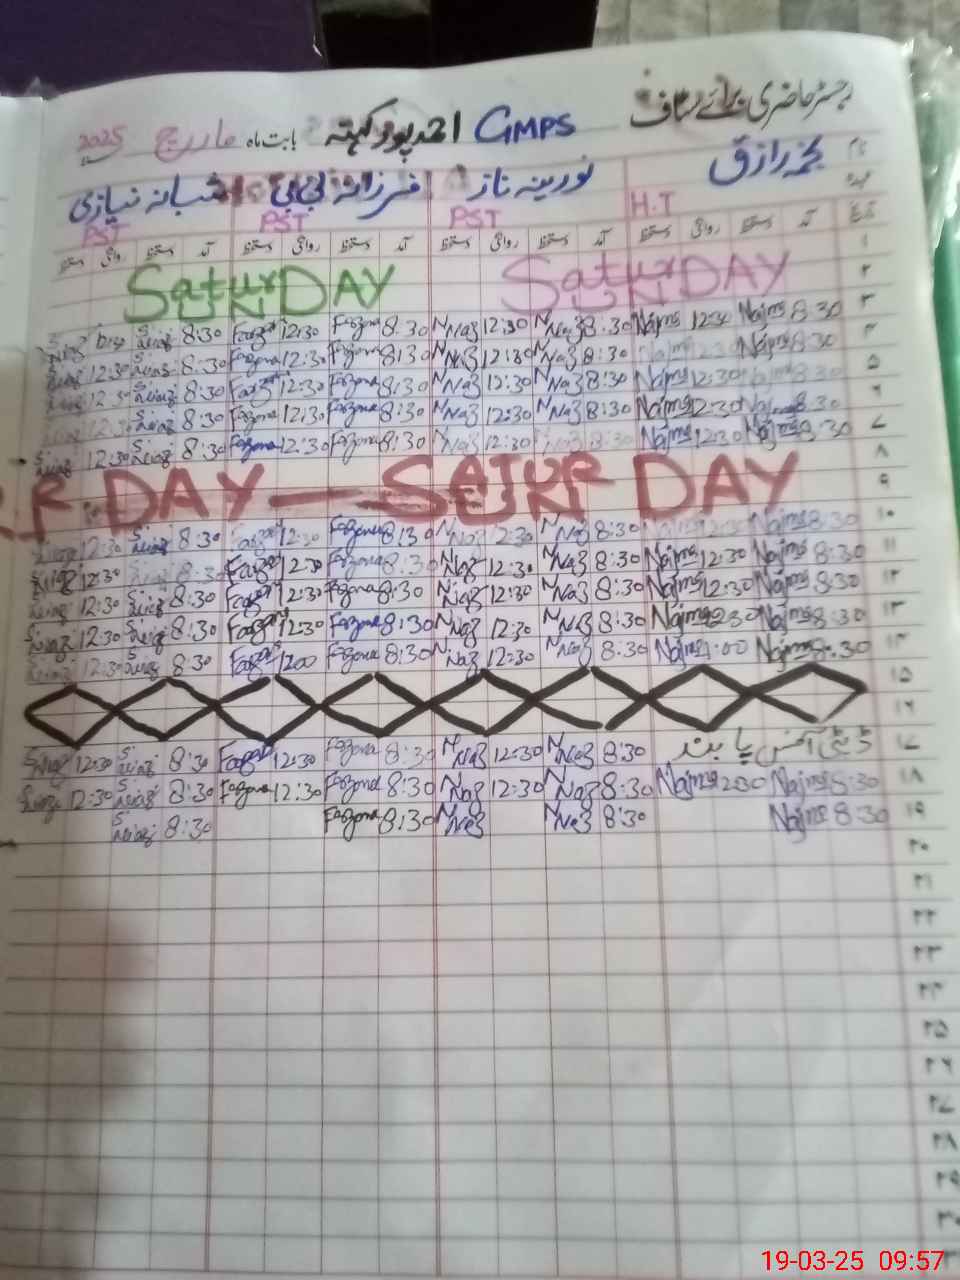 رجسٹر حاضری برائے سٹاف GMPS احمد پور کہنہ بابت ماہ مارچ 2025
نجمہ رازق نورینہ ناز فرزانہ بی بی شبانہ نیازی
H.T PST PST PST
تاریخ آمد دستخط روانگی دستخط آمد دستخط روانگی دستخط آمد دستخط روانگی دستخط آمد دستخط روانگی دستخط
۱ SaturDAY SaturDAY
۲ SUN SUN
۳ 8:30 Najma 12:30 Najma 8:30 N Naz 12:30 N Naz 8:30 Farzana 12:30 8:30 S Niazi
۴ 8:30 Najma 12:30 Najma 8:30 N Naz 12:30 N Naz 8:30 Farzana 12:30 Farzana 8:30 S Niazi 12:30 S Niazi
۵ 8:30 Najma 12:30 Najma 8:30 N Naz 12:30 N Naz 8:30 Farzana 12:30 8:30 S Niazi 12:30 S Niazi
۶ 8:30 Najma 12:30 Najma 8:30 N Naz 12:30 N Naz 8:30 Farzana 12:30 8:30 S Niazi 12:30 S Niazi
۷ 8:30 Najma 12:30 Najma 8:30 N Naz 12:30 N Naz 8:30 Farzana 12:30 Farzana 8:30 S Niazi 12:30 S Niazi
۸ DAY — SATUR DAY
۹ SUN
۱۰ 8:30 Najma 12:30 Najma 8:30 N Naz 12:30 N Naz 8:30 Farzana 12:30 8:30 S Niazi 12:30 S Niazi
۱۱ 8:30 Najma 12:30 Najma 8:30 N Naz 12:30 Naz 8:30 Farzana 12:30 8:30 S Niazi 12:30
۱۲ 8:30 Najma 12:30 Najma 8:30 N Naz 12:30 Niaz 8:30 Farzana 12:30 8:30 S Niazi 12:30
۱۳ 8:30 Najma 2:30 Najma 8:30 N Naz 12:30 N Naz 8:30 Farzana 12:30 8:30 S Niazi 12:30
۱۴ 8:30 Najma 1:00 Najma 8:30 N Naz 12:30 N Naz 8:30 Farzana 1:00 8:30 S Niazi 12:30
۱۵
۱۶
۱۷ ڈپٹی آفس پابند 8:30 N Naz 12:30 N Naz 8:30 Farzana 12:30 8:30 S Niazi 12:30 S Niazi
۱۸ 8:30 Najma 2:30 Najma 8:30 N Naz 12:30 N Naz 8:30 Farzana 12:30 Farzana 8:30 S Niazi 12:30
۱۹ 8:30 Najma 8:30 N Naz N Naz 8:30 Farzana 8:30 S Niazi
۲۰
۲۱
۲۲
۲۳
۲۴
۲۵
۲۶
۲۷
۲۸
۲۹
۳۰
19-03-25 09:57